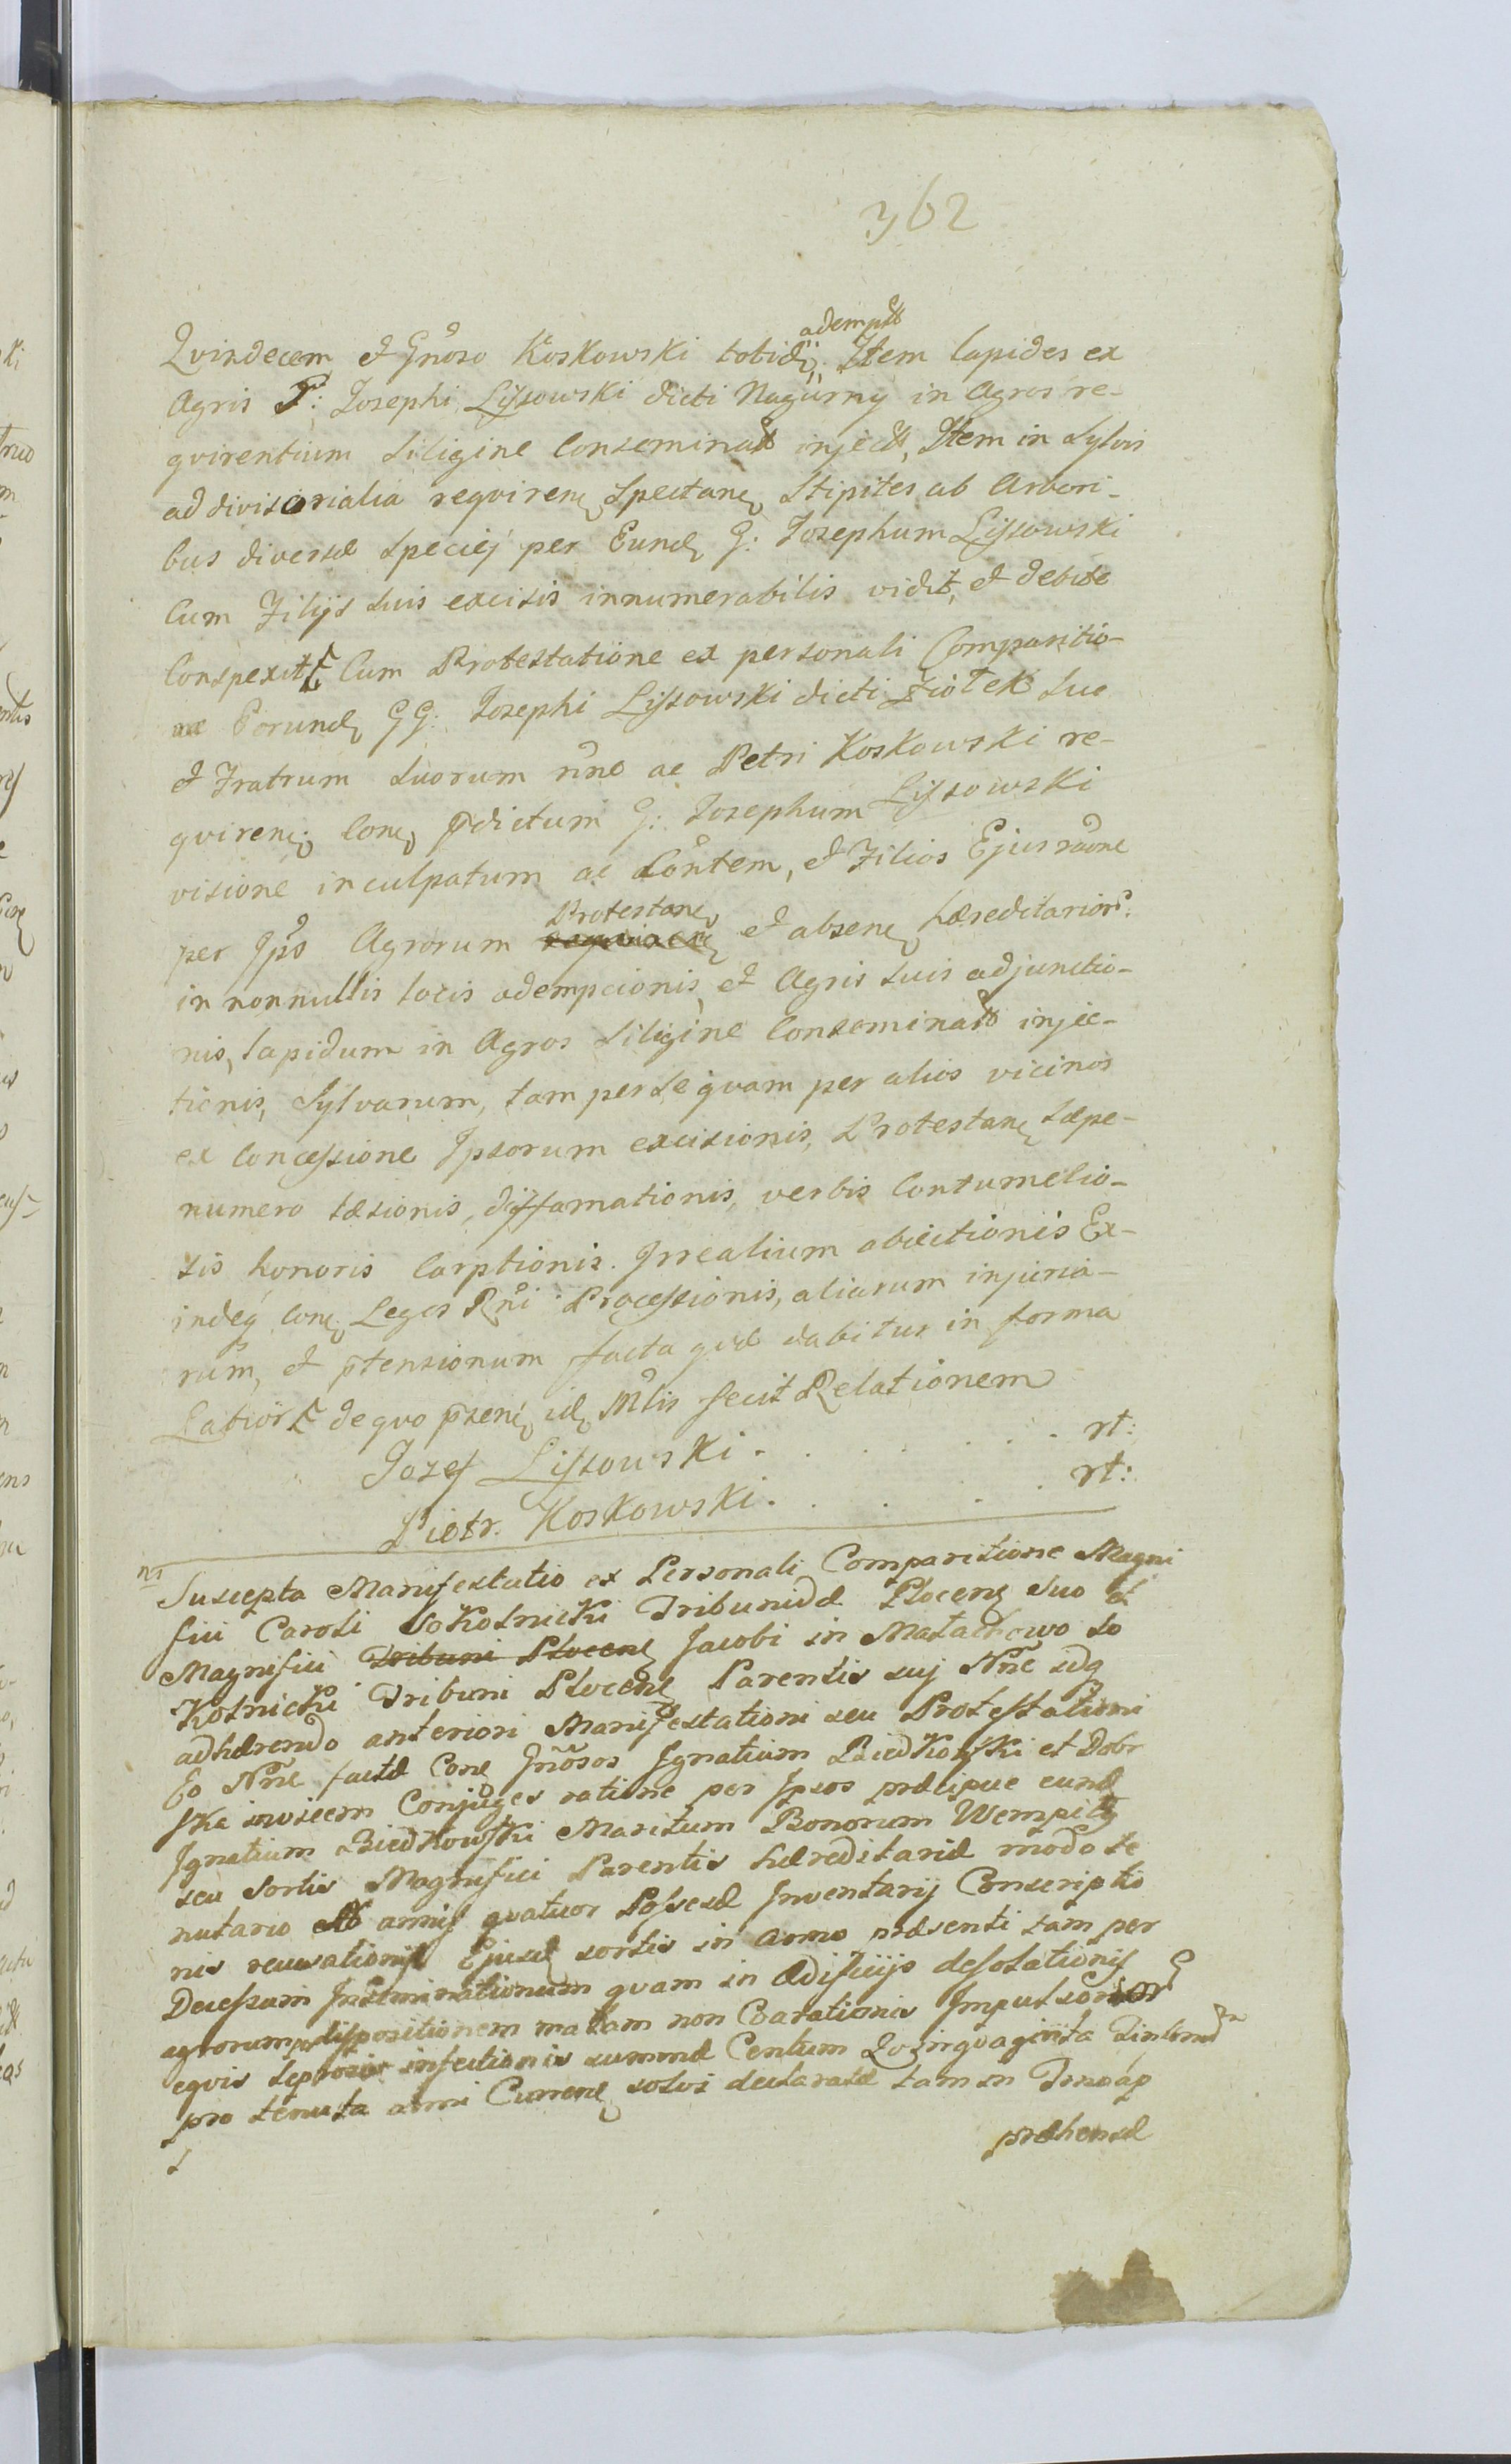 362
adempt
Qvindecem et Gnoso Koskowski totid Item lapides ex
Agris P: Josephi Lissowski dicti Nagurny in Agros re-
qvirentium siligine Conseminat inject, Item in Sylvis
ad divisorialia reqviren spectan Stipites ab Arbori-
bus diversæ speciej per Eund G: Josephum Lissowski
Cum Filijs suis excisis innumerabilis vidit, et debite
Conspexit Cum Protestatione ex personali Comparitio-
ne Eorund GG: Josephi Lissowski dicti Ziołek suo
et Fratrum suorum nne ac Petri Koskowski re-
qviren: Con pdictum G: Josephum Lissowski
visione inculpatum ac Contem, et Filios Ejus raone
Protestan
per Ips Agrorum et absen hæreditarior:
in nonnullis locis adempcionis et Agris suis adjunctio-
nis, lapidum in Agros siligine Conseminat injec-
tionis, Sylvarum, tam per se qvam per alios vicinos
ex Concessione Ipsorum excisionis, Protestan sæpe-
numero læsionis, diffamationis, verbis Contumelio-
sis honoris Carptionis. Irrealium abiectionis Ex-
indeq Con Leges Rni Processionis, aliarum injuria-
rum, et ptensionum facta qvæ dabitur in forma
Latiori de qvo pzen id Mlis fecit Relationem
Jozef Lissowski . . . . . . rt:
Piotr Koskowski . . . . . rt:
ns
Suscepta Manifestatio ex Personali Comparitione Magni
fici Caroli Sokolnicki Tribunidæ Plocen Suo et
Magnifici Tribuni Plocen Jacobi in Małachowo So
Kolnicki Tribuni Plocen Parentis suj Nne
adhærendo anteriori Manifestationi seu Protestationi
Eo Nne factæ Con Gnosos Ignatium Biedkowski et Dobr
ska invicem Conjuges ratione per Ipsos præcipue eund
Ignatium Biedkowski Maritum Bonorum Wempiły
seu Sortis Magnifici Parentis hæreditariæ modo te
nutario ab annis qvatuor Possesæ Inventarij Conscriptio
nis recusationis Ejusd sortis in anno præsenti tam per
Decessum Inseminationum qvam in Ædificijs desolationis
agrorum dispositionem malam non Coarationis
eqvis leprosis infectionis summæ Centum Qvinqvaginta
pro tenuta anni Curren solvi declaratæ tam in
præhensæ